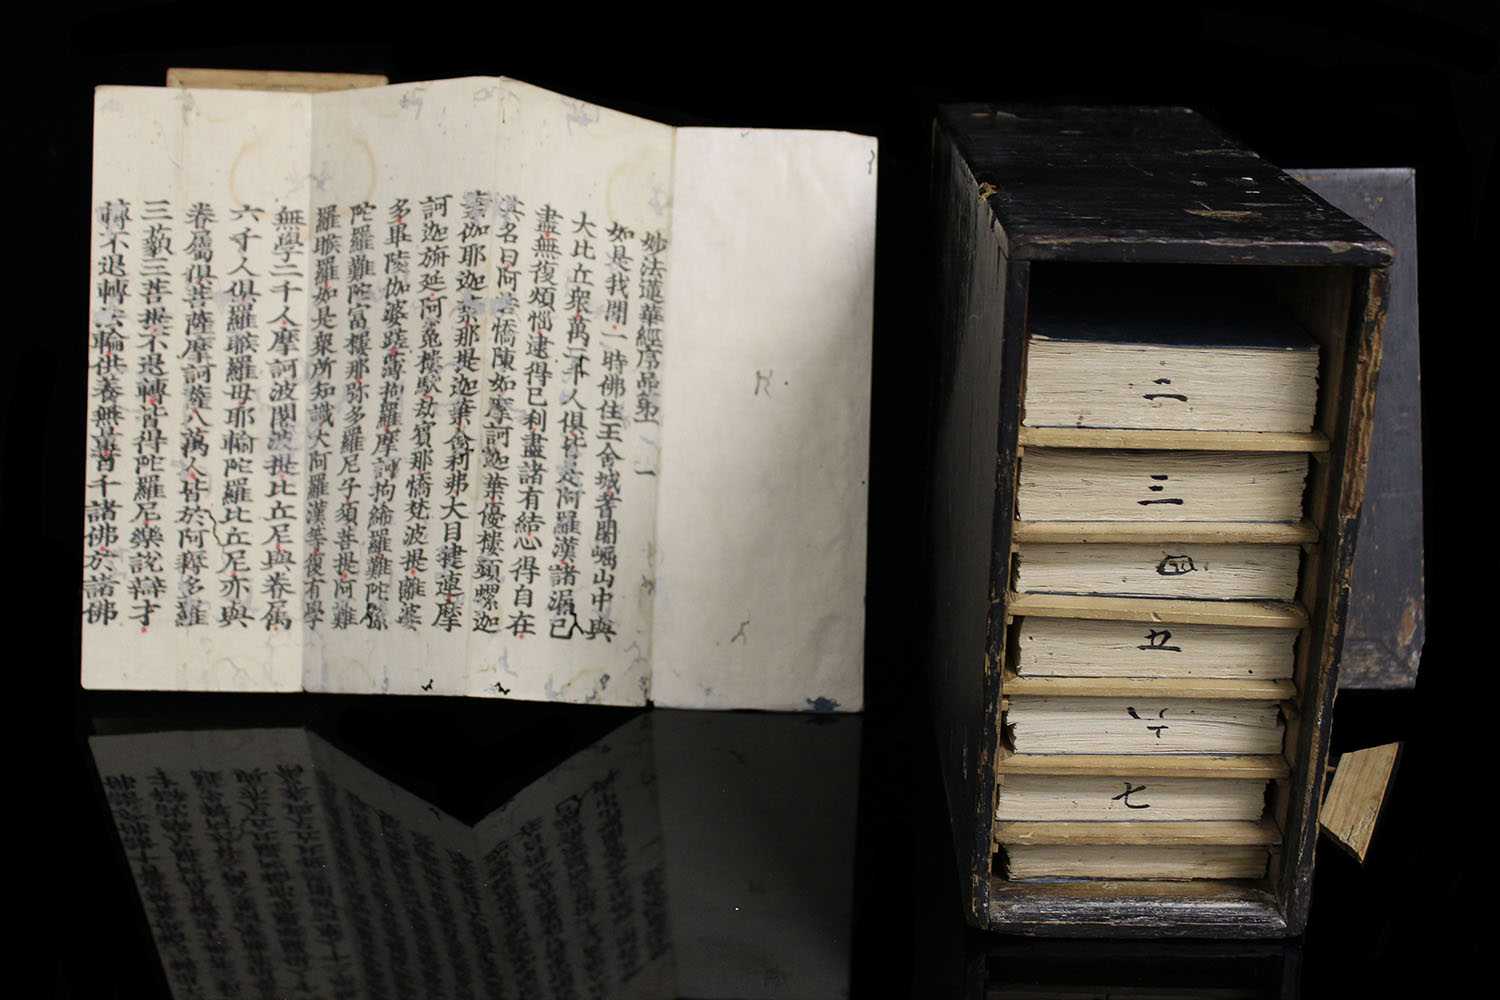 妙法蓮華經序品第一
如是我聞一時佛住王舍城耆闍崛山中與
大比丘衆萬二千人俱皆是阿羅漢諸漏已
盡無復煩惱逮得已利盡諸有結心得自在
其名曰阿若憍陳如摩訶迦葉優樓頻螺迦
葉伽耶迦葉那提迦葉舍利弗大目揵連摩
訶迦旃延阿㝹樓馱劫賓那憍梵波提離婆
多畢陵伽婆蹉薄拘羅摩訶拘絺羅難陀孫
陀羅難陀富樓那弥多羅尼子須菩提阿難
羅睺羅如是衆所知識大阿羅漢等復有學
無學二千人摩訶波闍波提比丘尼與眷属
六千人俱羅睺羅母耶輸陀羅比丘尼亦與
眷屬俱菩薩摩訶薩八萬人皆於阿耨多羅
三藐三菩提不退轉皆得陀羅尼樂說辯才
轉不退轉法輪供養無量百千諸佛於諸佛
二
三
四
五
六
七